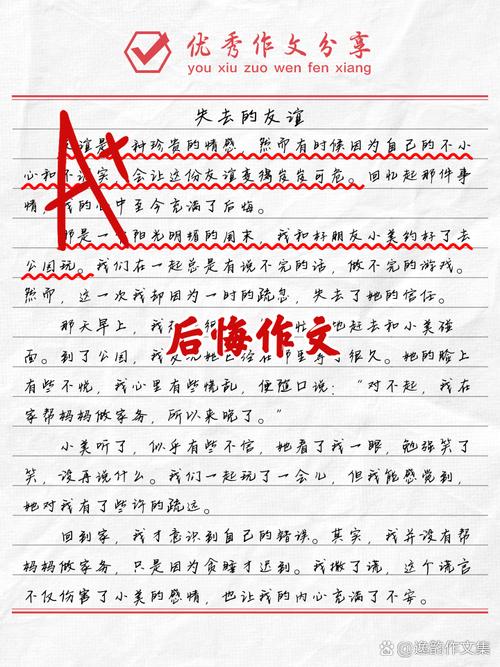 优秀作文分享
you xiu zuo wen fen xiang
失去的友谊
A+
谊是 种珍贵的情感，然而有时候因为自己的不小
心和不诚实，会让这份友谊变得岌岌可危。回忆起那件事
情，我的心中至今充满了后悔。
那是一 阳光明媚的周末，我和好朋友小美约好了去
公园玩。我们在一起总是有说不完的话，做不完的游戏。
然而，这一次我却因为一时的疏忽，失去了她的信任。
那天早上，我 很 忙 地赶去和小美碰
后悔作文
面。到了公园，我发现她已经在那里等了很久。她的脸上
有些不悦，我心里有些慌乱，便随口说：“对不起，我在
家帮妈妈做家务，所以来晚了。”
小美听了，似乎有些不信，她看了我一眼，勉强笑了
笑，没再说什么。我们一起玩了一会儿，但我能感觉到，
她对我有了些许的疏远。
回到家，我才意识到自己的错误。其实，我并没有帮
妈妈做家务，只是因为贪睡才迟到。我撒了谎，这个谎言
不仅伤害了小美的感情，也让我的内心充满了不安。
逸韵作文集